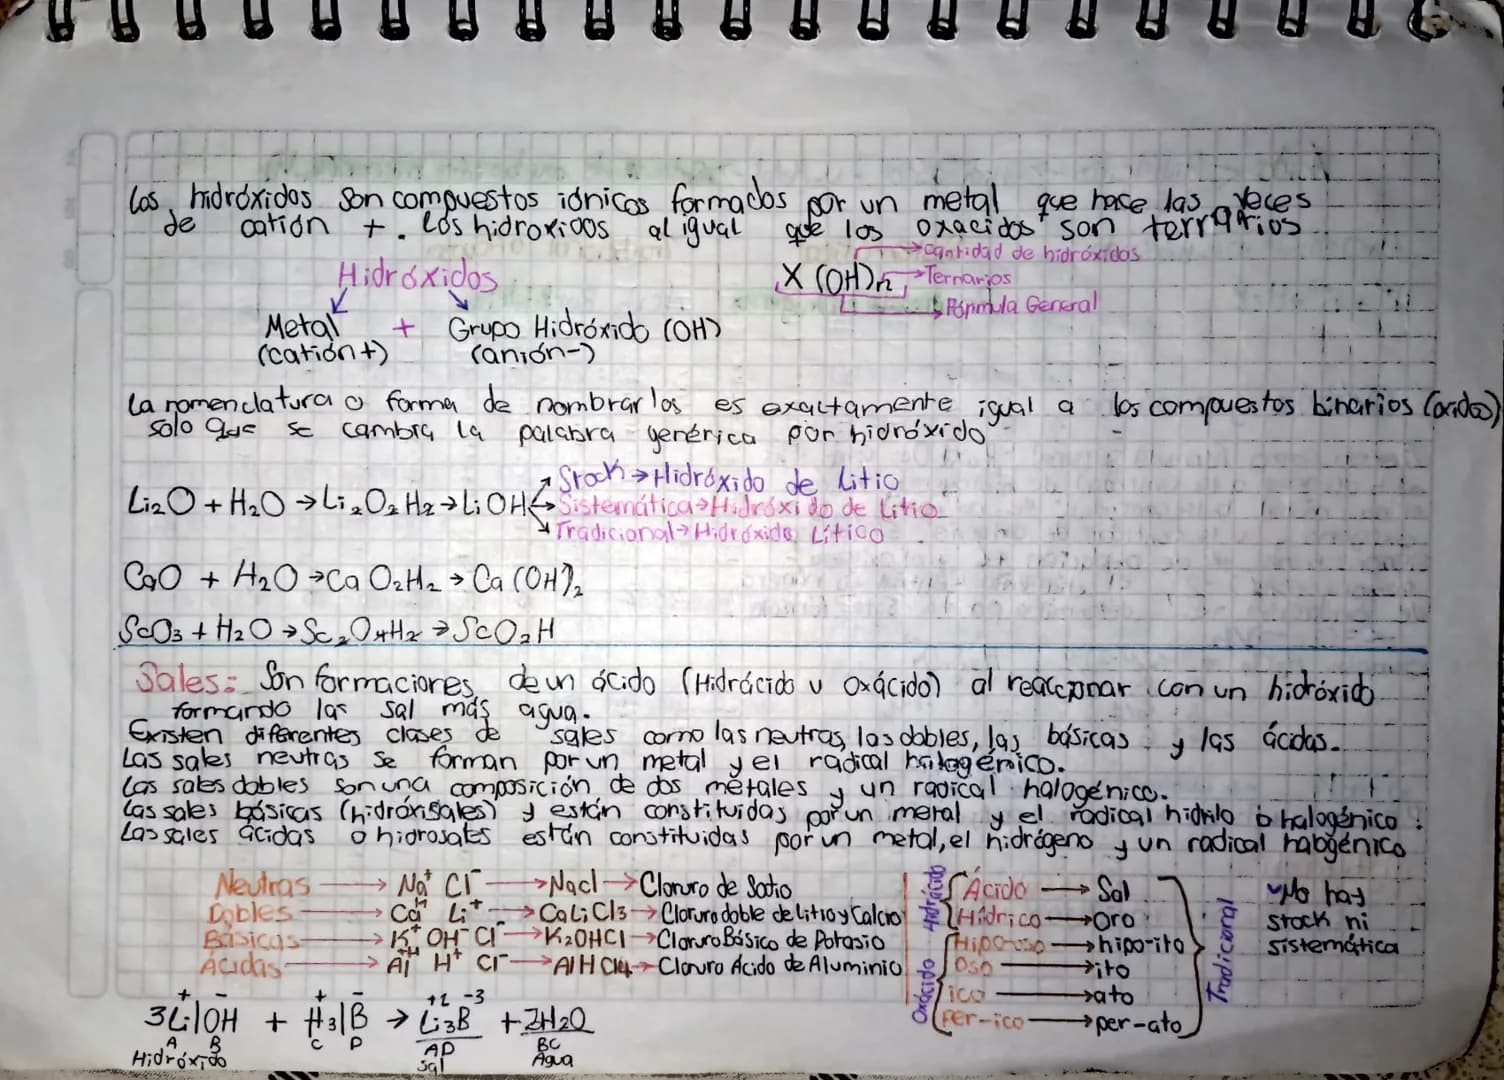 Los hidróxidos son compuestos iónicos formados por un metal que hace las veces
de catión +. Los hidroxidos al igual que los oxacidos son terrnarios
Hidróxidos
Metal + Grupo Hidróxido (OH)
(catión+) (anión-)
X (OH)n
cantidad de hidróxidos
Ternarios
Fórmula General
La nomenclatura o forma de nombrarlos es exactamente igual a los compuestos binarios (oxidos)
solo que se cambia la palabra genérica por hidróxido
Li₂O + H₂O → Li₂O₂H₂ → LiOH
Stock → Hidróxido de Litio
Sistemática → Hidróxido de Litio
Tradicional → Hidróxido Lítico
CaO + H₂O → Ca O₂H₂ → Ca (OH)₂
ScO₃ + H₂O → Sc₂O₄H₂ → ScO₂H
Sales: Son formaciones de un ácido (Hidrácido u Oxácido) al reaccionar con un hidróxido
formando las sal más agua.
Existen diferentes clases de sales como las neutras, las dobles, las básicas y las ácidas.
Las sales neutras se forman por un metal y el radical halogénico.
Las sales dobles son una composición de dos metales y un radical halogénico.
Las sales básicas (hidróxisales) y están constituidas por un metal y el radical hidrilo o halogénico.
Las sales ácidas o hidrosales están constituidas por un metal, el hidrógeno y un radical halogénico
Neutras → Na⁺ Cl⁻ → Nacl → Cloruro de Sodio
Dobles → Ca⁺⁺ Li⁺ → CaLiCl₃ → Cloruro doble de Litio y Calcio
Básicas → K⁺ OH⁻ Cl⁻ → K₂OHCl → Cloruro Básico de Potasio
Ácidas → Al H⁺ Cl⁻ → AlHCl₄ → Cloruro Ácido de Aluminio
Hidrácido
Ácido → Sal
Hídrico → Oro
Oxácido
Hipo-oso → hipo-ito
Oso → ito
ico → ato
Per-ico → per-ato
Tradicional
No hay
stock ni
sistemática
+ - + - +1 -3
3Li|OH + H₃|B → Li₃B + 3H₂O
A B C D AD BC
Hidróxido Sal Agua